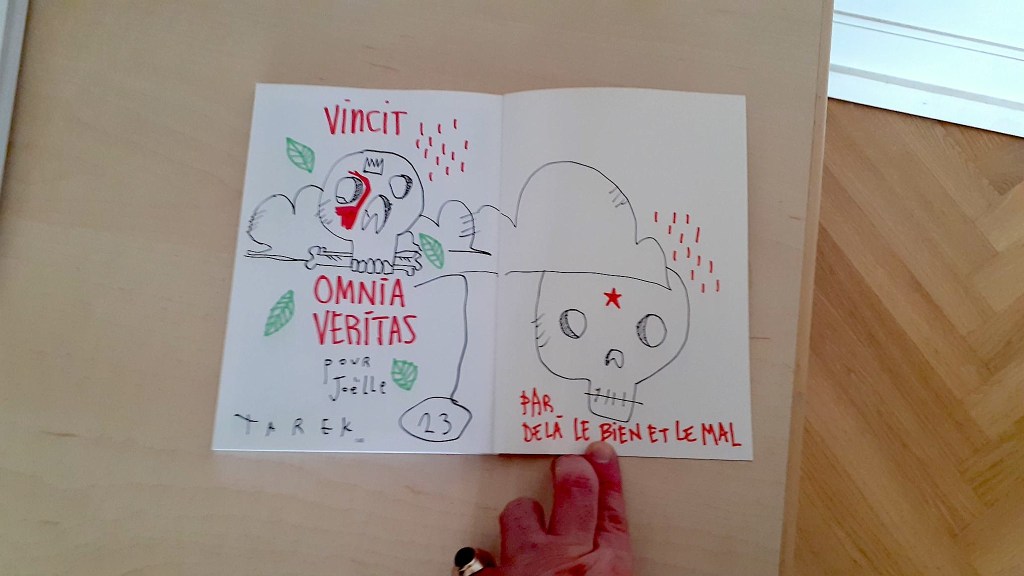 VinCiT
OMNiA
VERiTAS
pour
Joëlle
TAREK
23
PAR-
DELÀ LE BIEN ET LE MAL